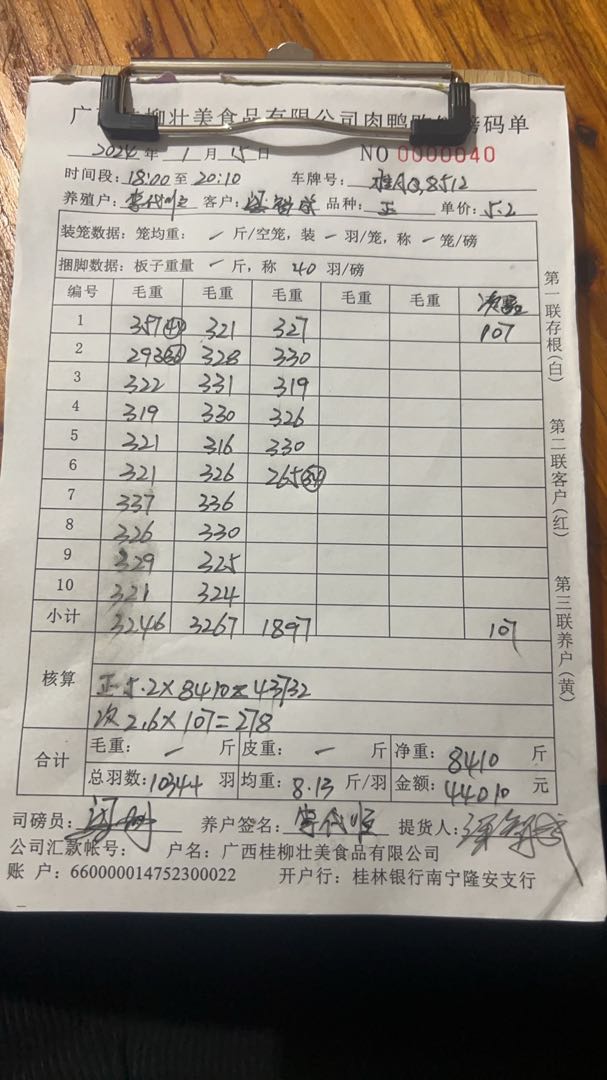 广西桂柳壮美食品有限公司肉鸭 磅码单
2024年 1月 15日 NO 0000040
时间段: 18:00 至 20:10 车牌号: 桂AQ8512
养殖户: 李代 客户: 品种: 正 单价: 5.2
装笼数据: 笼均重: / 斤/空笼, 装 / 羽/笼, 称 / 笼/磅
捆脚数据: 板子重量 / 斤, 称 40 羽/磅
编号 毛重 毛重 毛重 毛重 毛重 次
1 357 321 327 107
2 293 328 330
3 322 331 319
4 319 330 326
5 321 316 330
6 321 326 265
7 337 336
8 326 330
9 329 325
10 321 324
小计 3246 3267 1897 107
核算
正 5.2×8410=43732
次 2.6×107=278
合计 毛重: / 斤 皮重: / 斤 净重: 8410 斤
总羽数: 1034 羽 均重: 8.13 斤/羽 金额: 44010 元
司磅员: 养户签名: 李代 提货人:
公司汇款帐号: 户名: 广西桂柳壮美食品有限公司
账 户: 660000014752300022 开户行: 桂林银行南宁隆安支行
第一联存根(白)
第二联客户(红)
第三联养户(黄)